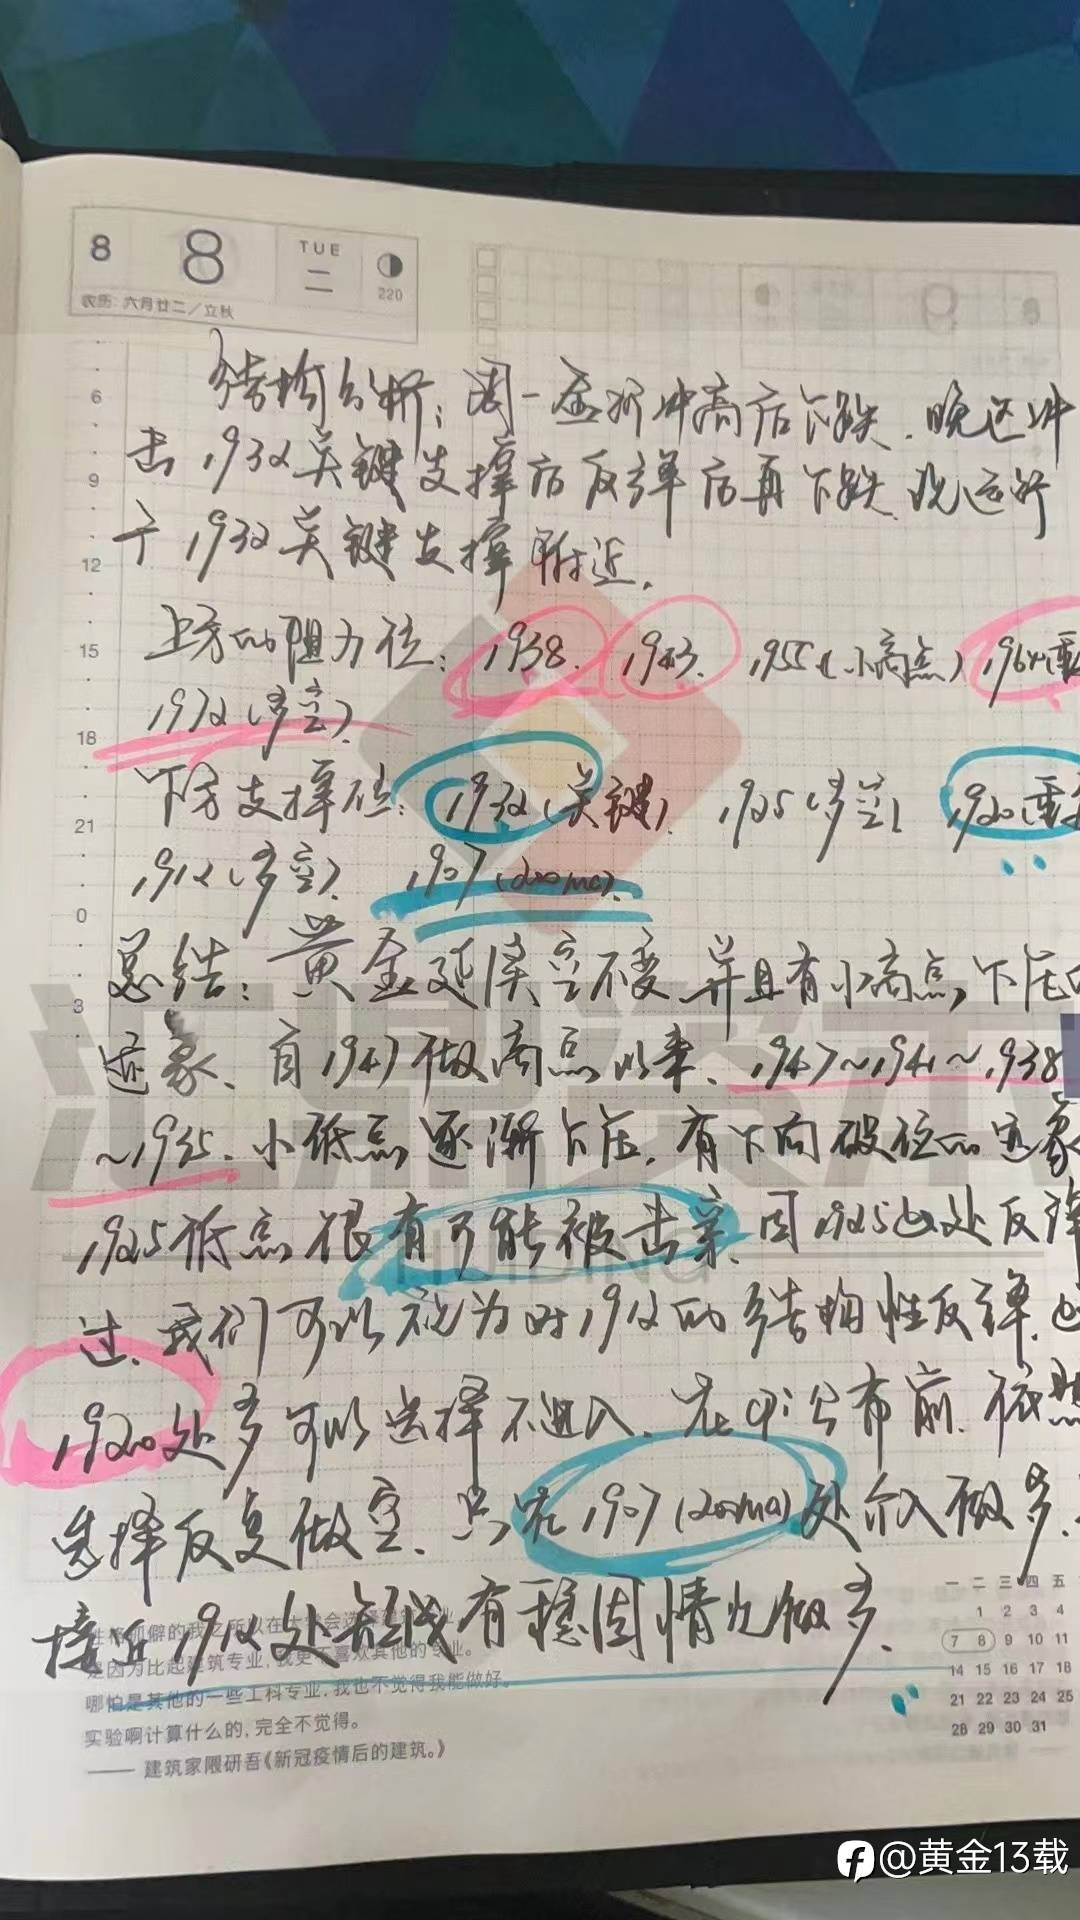 8 8 TUE 二 220
农历 六月廿二／立秋
6
9
12
15
18
21
0
3
结构分析：周一金价冲高后下跌．晚述冲
击1932关键支撑后反弹后再下跌．现运行
于1932关键支撑附近．
上方的阻力位：1938．1943．1955（小高点）1964（重
1972（多空）．
下方支撑位：1932（关键）．1925（多空）1920（重
1912（多空）．1907（200ma）．
总结：黄金延续空不变．并且有小高点下压的
迹象．自1947做高点以来．1947～1941～1938
～1935．小低点逐渐下压．有下向破位的迹象
1925低点很有可能被击穿．因1925此处反弹
过．我们可以视为对1912的结构性反弹．
1920处多可以选择不进入．在cpi公布前．依然
选择反复做空．只在1907（200ma）处介入做多．
接近1912处短线有稳固情况做多．
性格孤僻的我之所以在大学会选择建筑专业
是因为比起建筑专业，我更不喜欢其他的专业。
哪怕是其他的一些工科专业，我也不觉得我能做好。
实验啊计算什么的，完全不觉得。
—— 建筑家隈研吾《新冠疫情后的建筑。》
一 二 三 四 五
1 2 3 4
7 8 9 10 11
14 15 16 17 18
21 22 23 24 25
28 29 30 31
汇鼎资本
HUIDING
@黄金13载